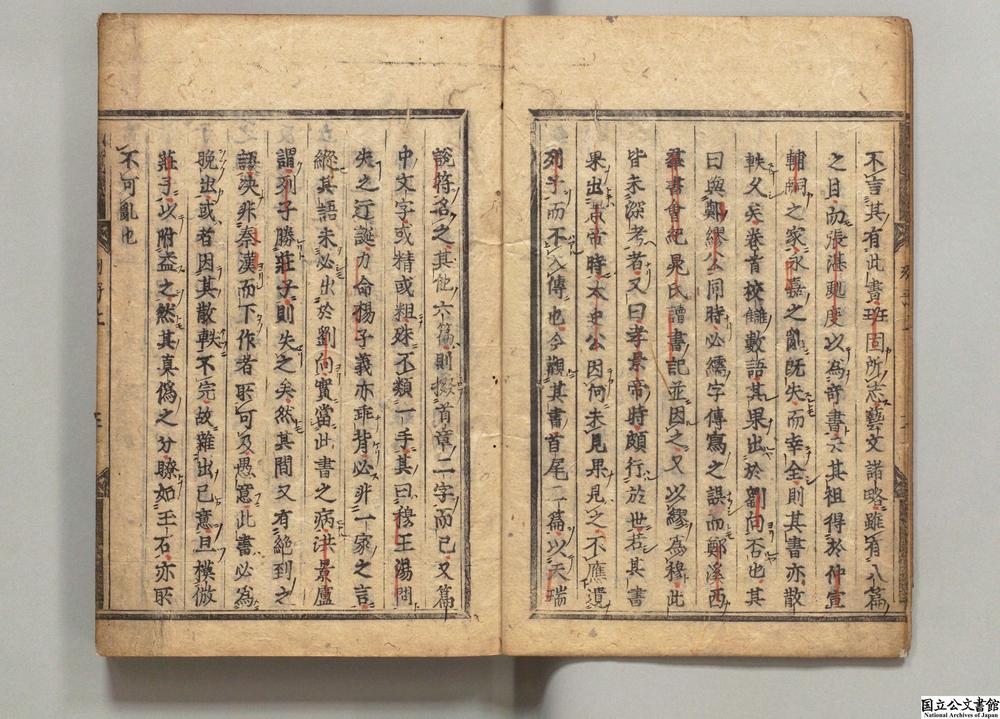 不言其有此書班固所志藝文諸略雖有八篇
之目而張湛別度以為奇書六其祖得於仲宣
輔嗣之家永嘉之亂既失而幸全則其書亦散
軼久矣卷首校讎數語其果出於劉向否也其
曰與鄭繆公同時必繻字傳寫之誤而鄭溪西
羣書會紀晁氏讀書記並因之又以繆為穆此
皆未深考者又曰孝景帝時頗行於世若其書
果出景帝時太史公因何未見果見之不應遺
列子而不入傳也今觀其書首尾二篇以天瑞
說符名之其他六篇則掇首章二字而已又篇
中文字或精或粗殊不類一手其曰穆王湯問
失之迂誕力命楊子義亦乖背必非一家之言
縱其語未必出於劉向實當此書之病洪景盧
謂列子勝莊子則失之矣然其間又有絕到之
語決非秦漢而下作者所可及愚意此書必為
晚出或者因其散軼不完故雜出己意且模倣
莊子以附益之然其真偽之分瞭如玉石亦所
不可亂也
国立公文書館
National Archives of Japan